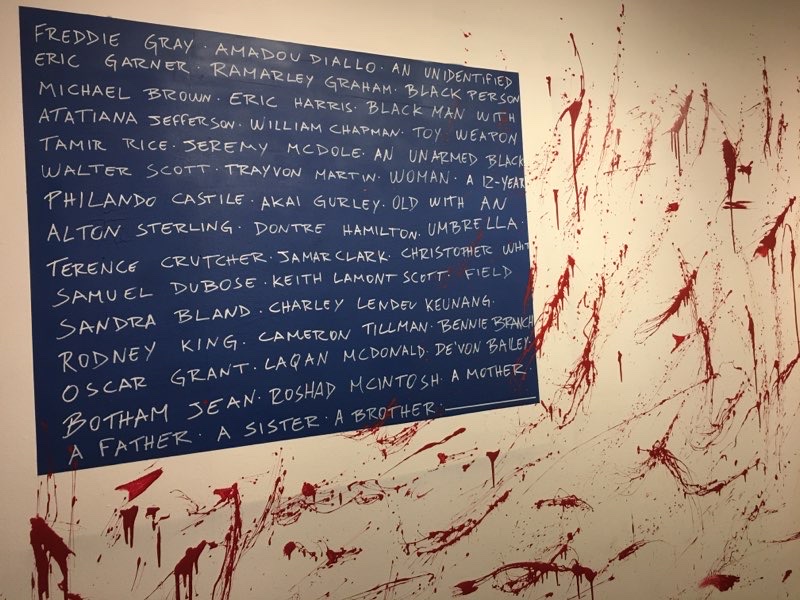 FREDDIE GRAY · AMADOU DIALLO · AN UNIDENTIFIED
ERIC GARNER · RAMARLEY GRAHAM · BLACK PERSON
MICHAEL BROWN · ERIC HARRIS · BLACK MAN WITH
ATATIANA JEFFERSON · WILLIAM CHAPMAN · TOY WEAPON
TAMIR RICE · JEREMY MCDOLE · AN UNARMED BLACK
WALTER SCOTT · TRAYVON MARTIN · WOMAN · A 12-YEAR
PHILANDO CASTILE · AKAI GURLEY · OLD WITH AN
ALTON STERLING · DONTRE HAMILTON · UMBRELLA ·
TERENCE CRUTCHER · JAMAR CLARK · CHRISTOPHER WHIT
SAMUEL DUBOSE · KEITH LAMONT SCOTT · FIELD
SANDRA BLAND · CHARLEY LENDEU KEUNANG ·
RODNEY KING · CAMERON TILLMAN · BENNIE BRANCH
OSCAR GRANT · LAQAN MCDONALD · DE'VON BAILEY ·
BOTHAM JEAN · ROSHAD MCINTOSH · A MOTHER ·
A FATHER · A SISTER · A BROTHER · ______